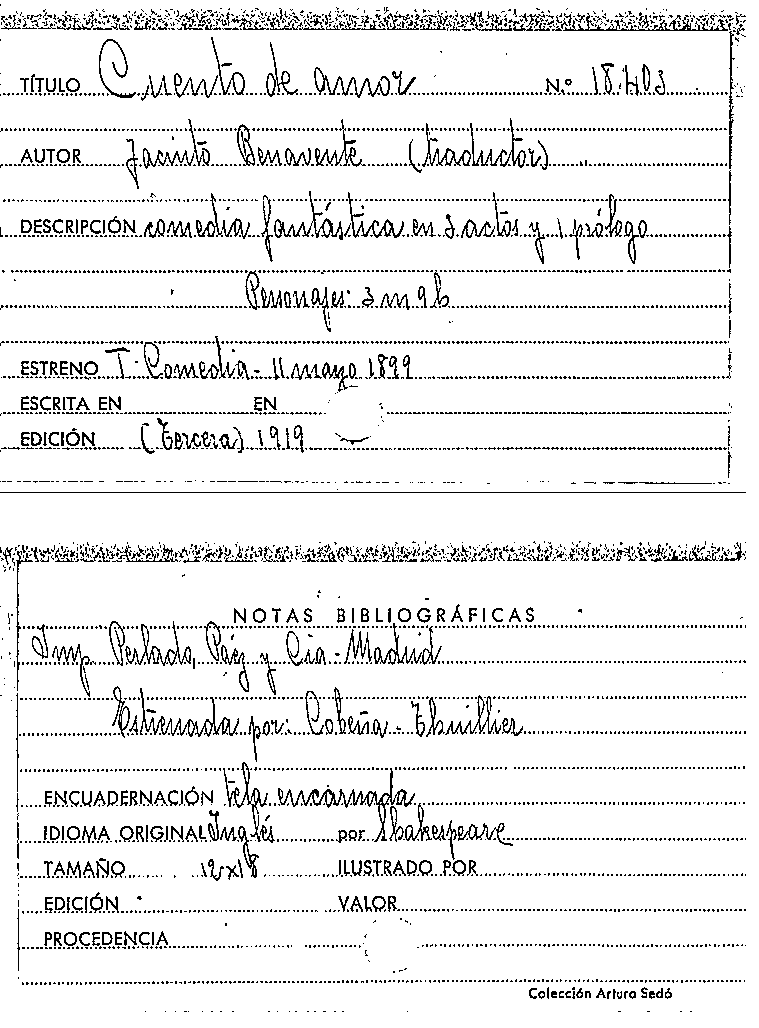 TÍTULO Cuento de amor N.º 18.403
AUTOR Jacinto Benavente (traductor)
DESCRIPCIÓN comedia fantástica en 3 actos y 1 prólogo
Personajes: 3 m 9 h
ESTRENO T. Comedia - 11 mayo 1899
ESCRITA EN EN
EDICIÓN (Tercera) 1919
NOTAS BIBLIOGRÁFICAS
Imp. Perlado, Páez y Cía - Madrid
Estrenada por: Cobeña - Thuillier
ENCUADERNACIÓN tela encarnada
IDIOMA ORIGINAL Inglés por Shakespeare
TAMAÑO 12x18 ILUSTRADO POR
EDICIÓN VALOR
PROCEDENCIA
Colección Arturo Sedó